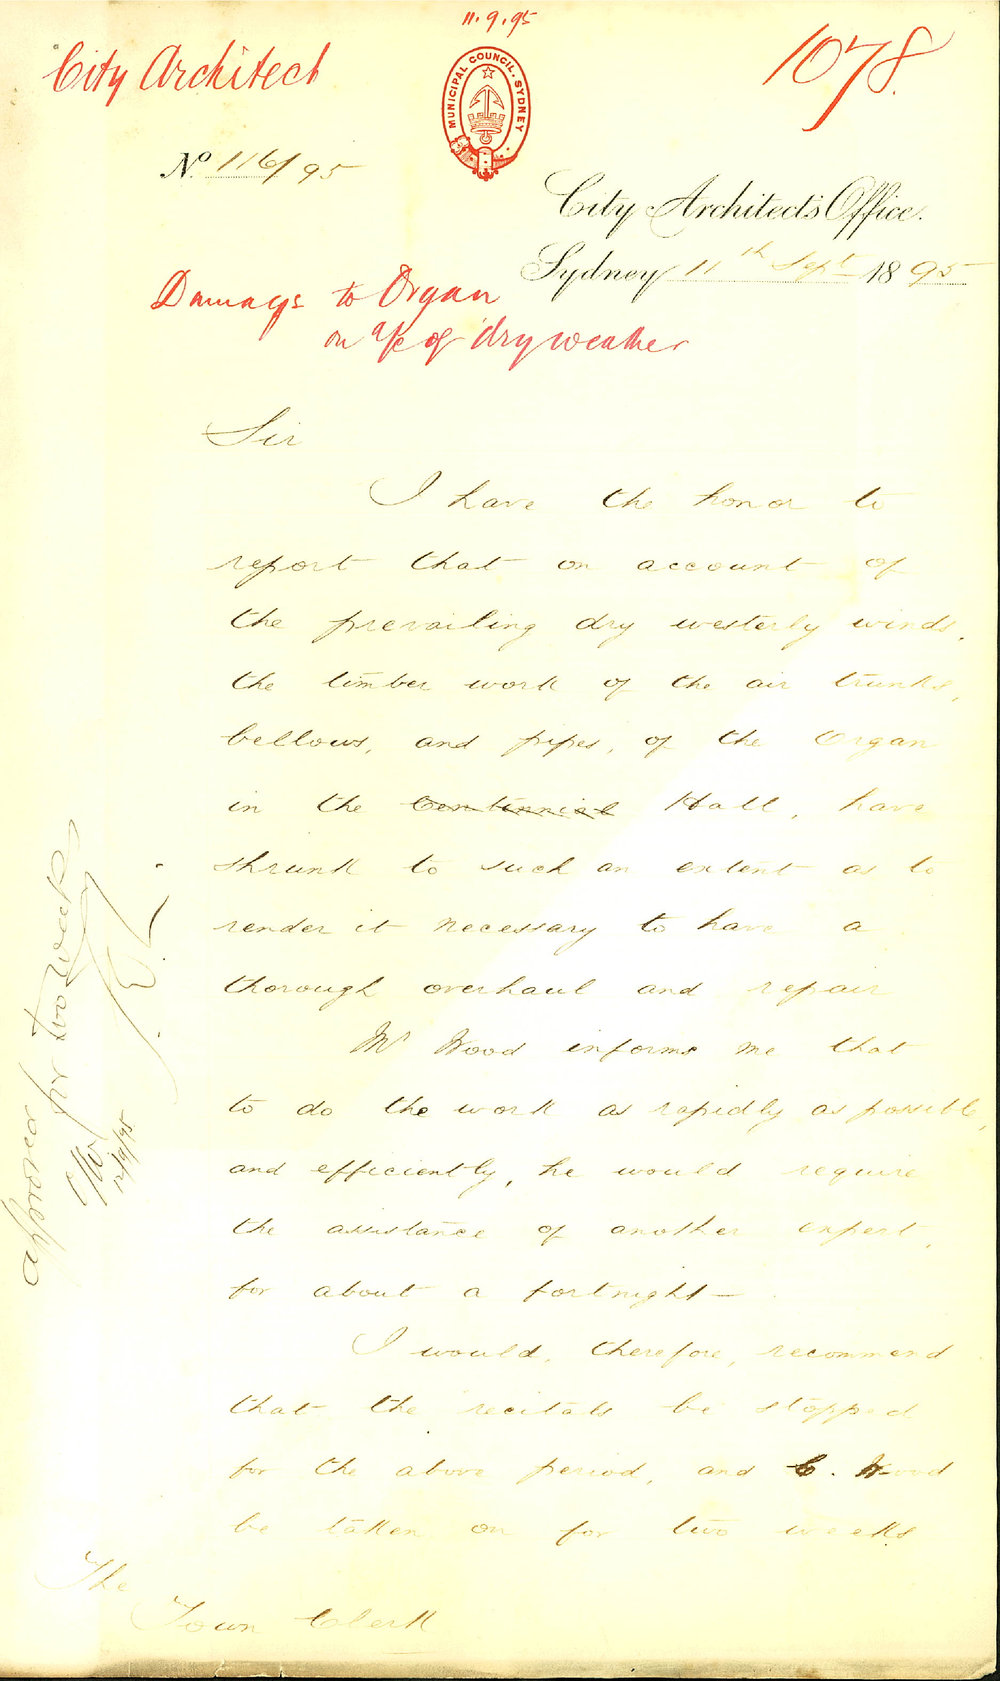 11.9.95
City Architect
1078.
MUNICIPAL COUNCIL. SYDNEY
No. 116/95
City Architect's Office.
Sydney 11th Sept 1895
Damage to Organ
on a/c of dry weather
Sir
I have the honor to
report that on account of
the prevailing dry westerly winds,
the timber work of the air trunks,
bellows, and pipes, of the Organ
in the Centennial Hall, have
shrunk to such an extent as to
render it necessary to have a
thorough overhaul and repair
Mr Wood informs me that
to do the work as rapidly as possible,
and efficiently, he would require
the assistance of another expert,
for about a fortnight—
I would, therefore, recommend
that the recitals be stopped
for the above period, and C. Wood
be taken on for two weeks
The
Town Clerk
approved for two weeks
12/9/95